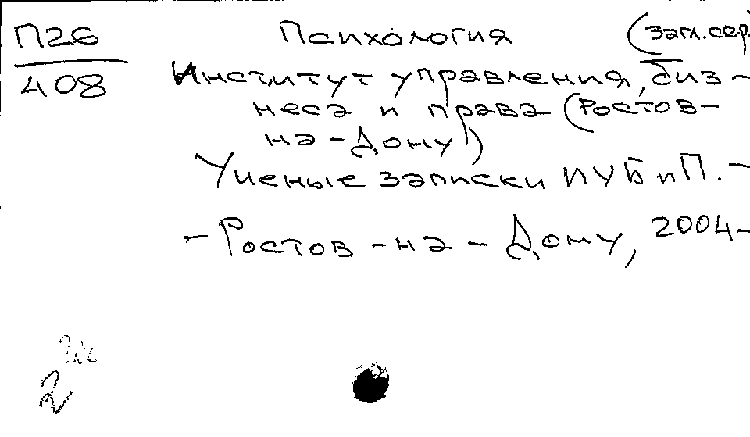 П26 Психология (загл.сер
408 Институт управления, биз-
неса и права (Ростов-
на-Дону)
Ученые записки ИУБиП. -
- Ростов-на-Дону, 2004-
2